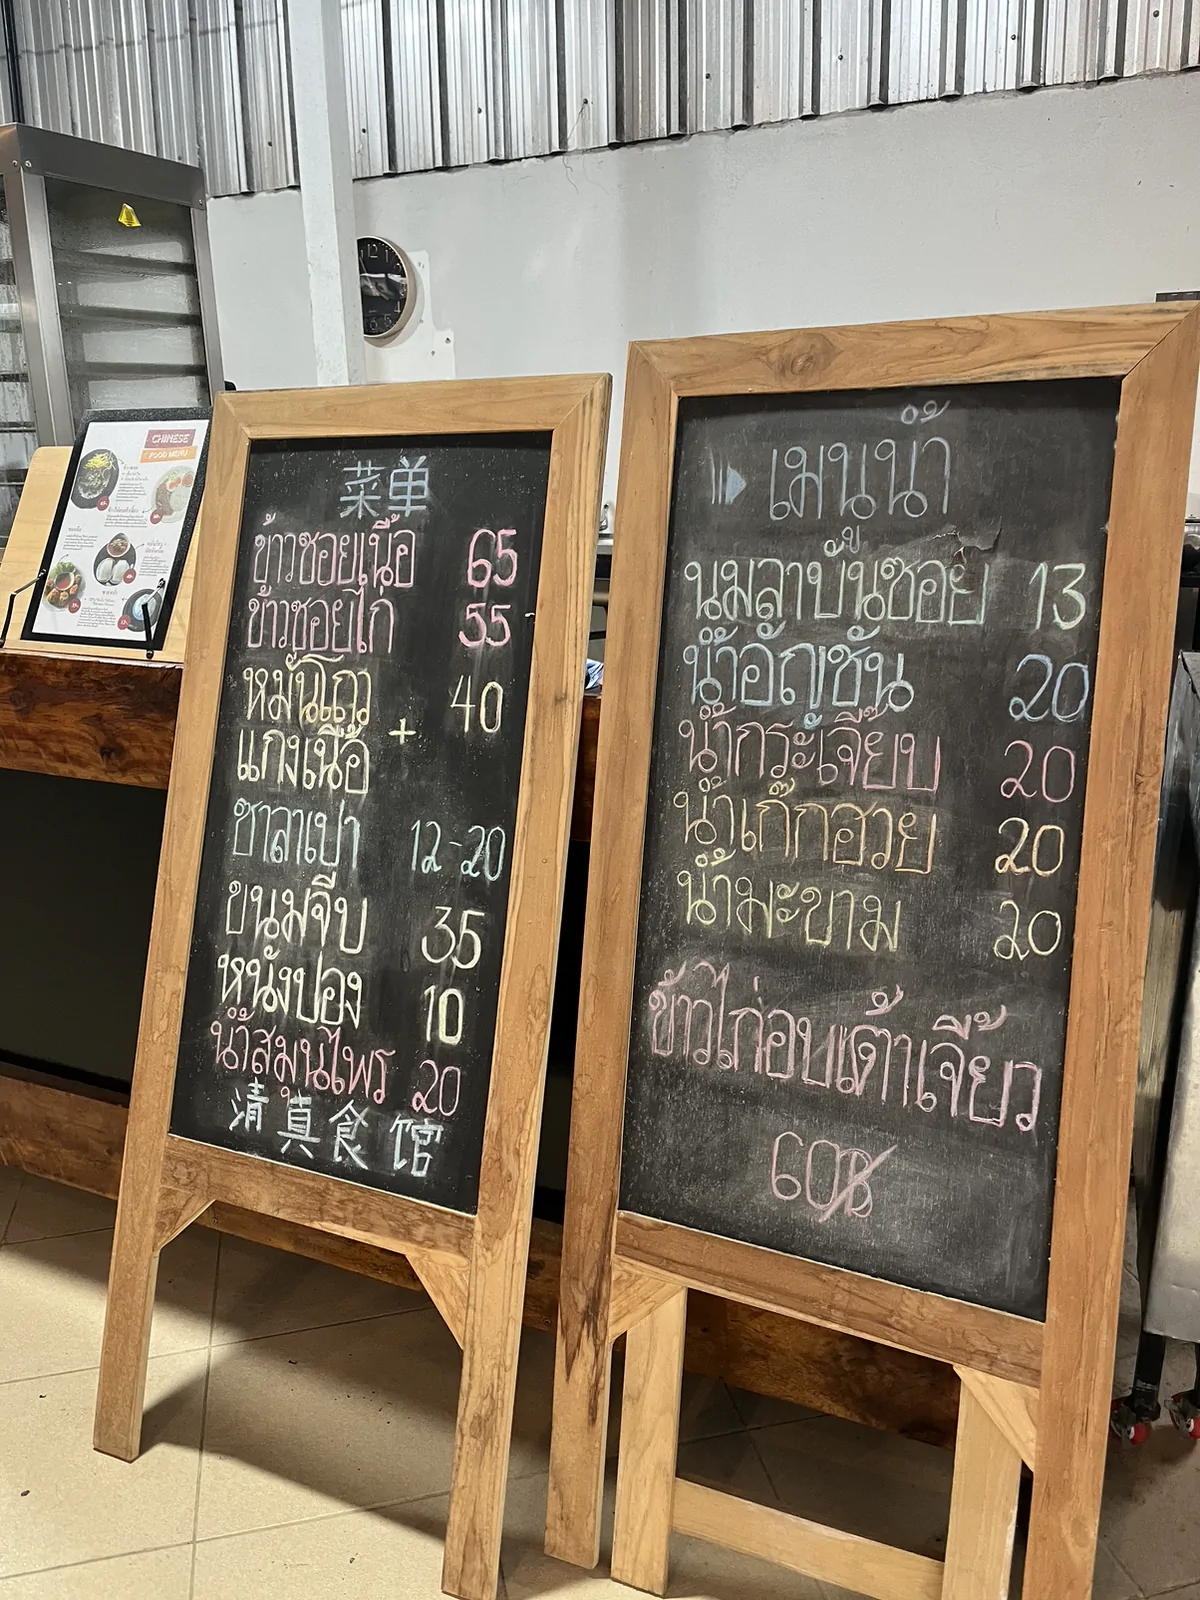 CHINESE
FOOD MENU
菜单
ข้าวซอยเนื้อ 65
ข้าวซอยไก่ 55
หมั่นโถว
+ 40
แกงเนื้อ
ซาลาเปา 12-20
ขนมจีบ 35
10
น้ำสมุนไพร 20
清真食馆
เมนูน้ำ
13
น้ำอัญชัน 20
น้ำกระเจี๊ยบ 20
น้ำเก๊กฮวย 20
น้ำมะขาม 20
ข้าวไก่อบเต้าเจี้ยว
60฿